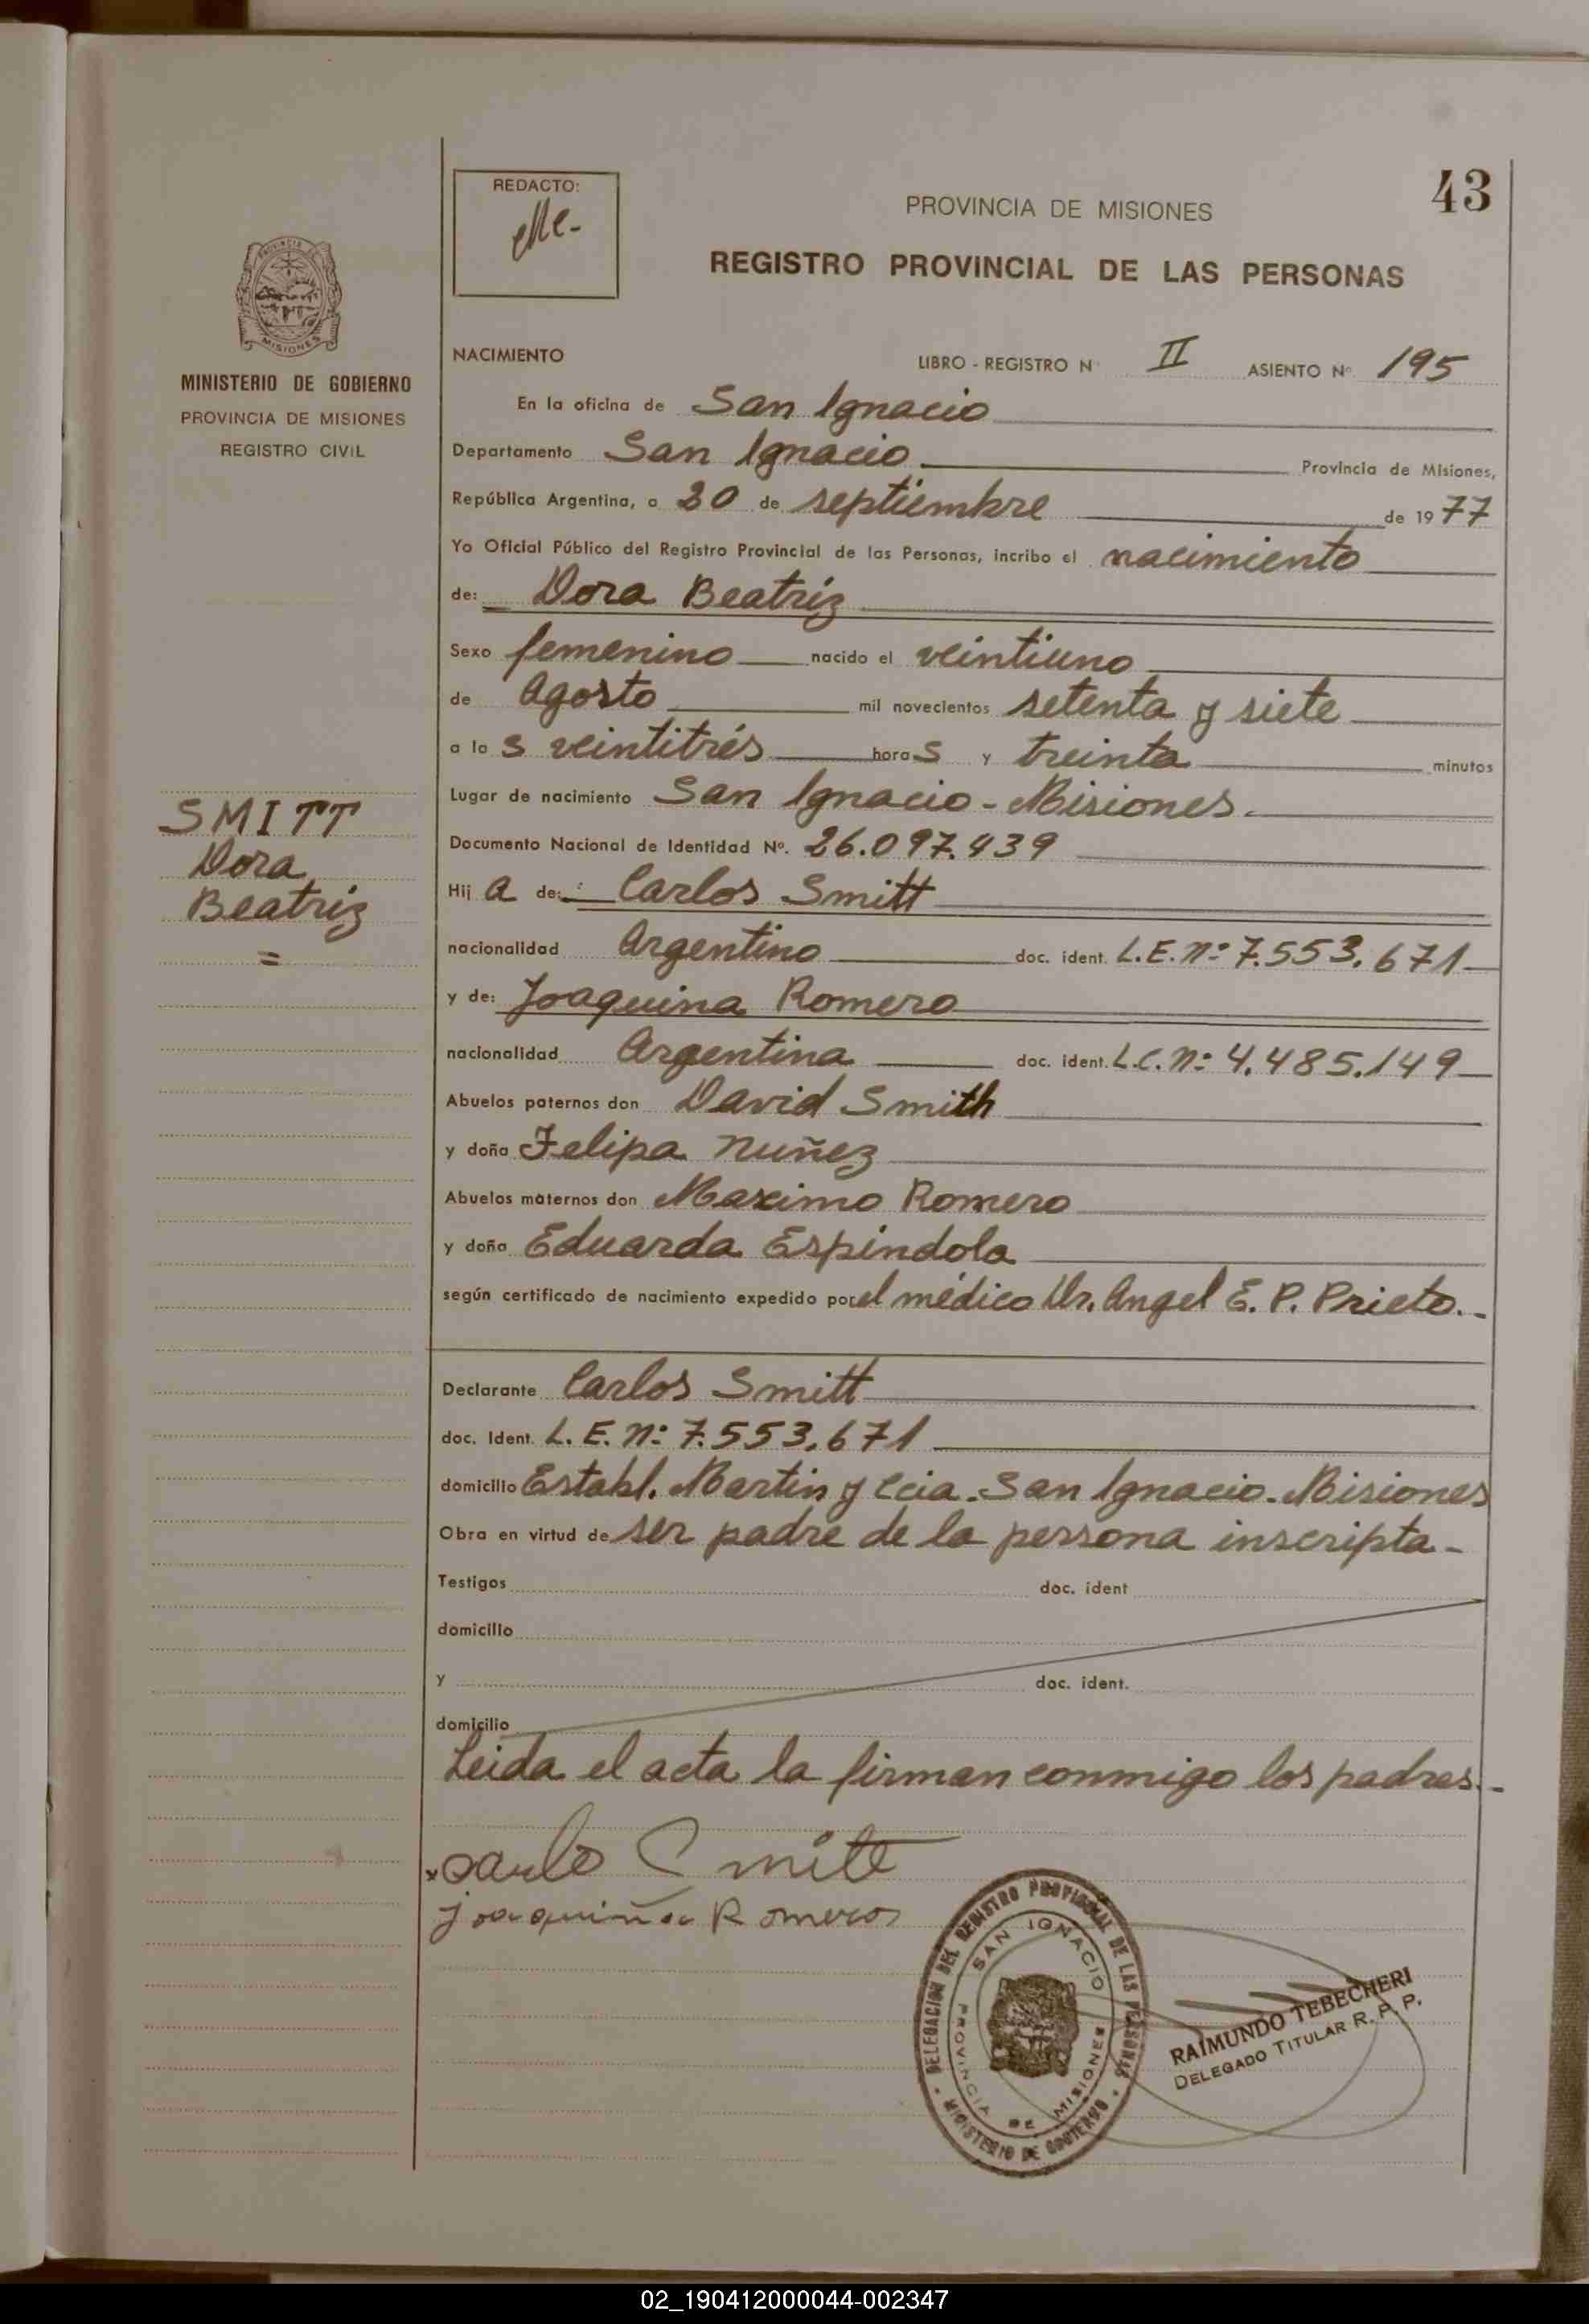 43
REDACTO:
PROVINCIA DE MISIONES
REGISTRO PROVINCIAL DE LAS PERSONAS
PROVINCIA DE
MISIONES
MINISTERIO DE GOBIERNO
PROVINCIA DE MISIONES
REGISTRO CIVIL
SMITT
Dora
Beatriz
=
NACIMIENTO LIBRO - REGISTRO Nº II ASIENTO Nº 195
En la oficina de San Ignacio
Departamento San Ignacio Provincia de Misiones,
República Argentina, a 20 de septiembre de 1977
Yo Oficial Público del Registro Provincial de las Personas, incribo el nacimiento
de: Dora Beatriz
Sexo femenino nacido el veintiuno
de Agosto mil novecientos setenta y siete
a la s veintitrés hora s y treinta minutos
Lugar de nacimiento San Ignacio - Misiones.
Documento Nacional de Identidad Nº. 26.097.439
Hij a de: Carlos Smitt
nacionalidad Argentino doc. ident. L.E. nº 7.553.671
y de: Joaquina Romero
nacionalidad Argentina doc. ident. L.C. nº 4.485.149
Abuelos paternos don David Smith
y doña Felipa Nuñez
Abuelos maternos don Maximo Romero
y doña Eduarda Espindola
según certificado de nacimiento expedido por el médico Dr. Angel E. P. Prieto.-
Declarante Carlos Smitt
doc. Ident. L. E. nº 7.553.671
domicilio Establ. Martin y Ccia. San Ignacio. Misiones
Obra en virtud de ser padre de la persona inscripta-
Testigos doc. ident
domicilio
y doc. ident.
domicilio
Leida el acta la firman conmigo los padres.-
Joaquiña Romero
DELEGACION DEL REGISTRO PROVINCIAL DE LAS PERSONAS
SAN IGNACIO
PROVINCIA DE MISIONES
MINISTERIO DE GOBIERNO
RAIMUNDO TEBECHERI
DELEGADO TITULAR R. P. P.
02_190412000044-002347